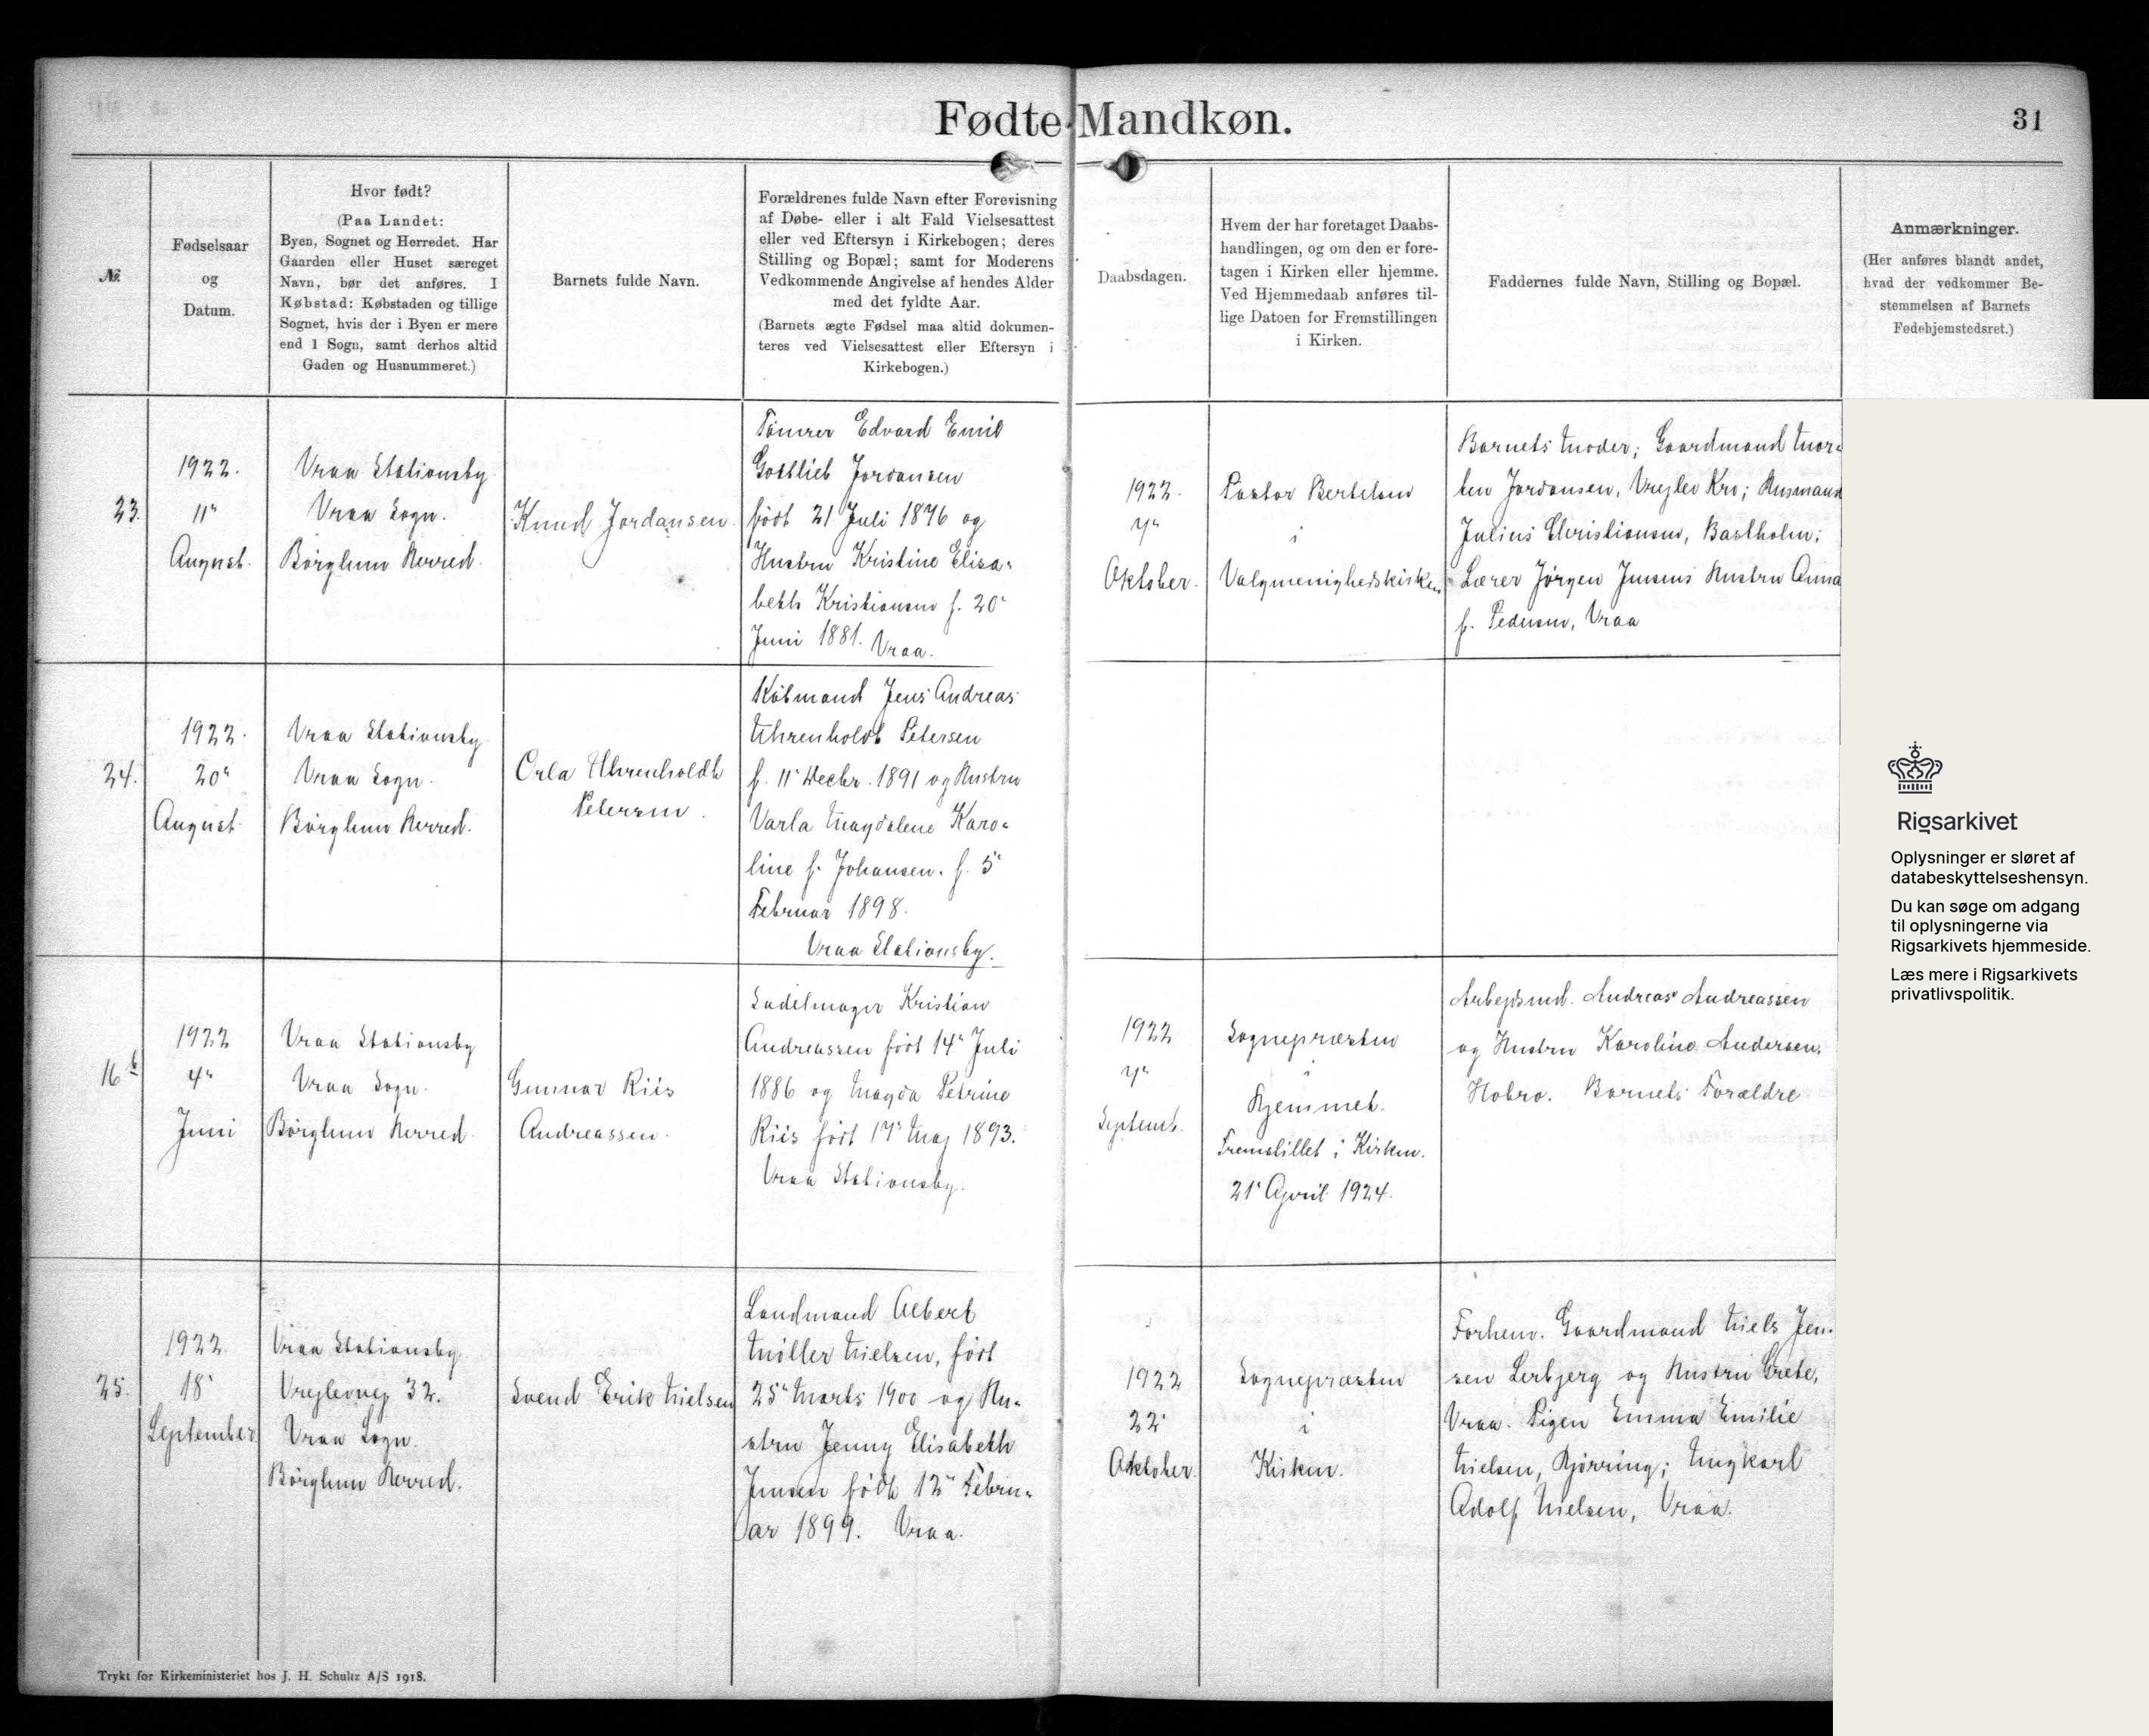 Fødte Mandkøn.
31
№
Fødselsaar
og
Datum.
Hvor født?
(Paa Landet:
Byen, Sognet og Herredet. Har
Gaarden eller Huset særeget
Navn, bør det anføres. I
Købstad: Købstaden og tillige
Sognet, hvis der i Byen er mere
end 1 Sogn, samt derhos altid
Gaden og Husnummeret.)
Barnets fulde Navn.
Forældrenes fulde Navn efter Forevisning
af Døbe- eller i alt Fald Vielsesattest
eller ved Eftersyn i Kirkebogen; deres
Stilling og Bopæl; samt for Moderens
Vedkommende Angivelse af hendes Alder
med det fyldte Aar.
(Barnets ægte Fødsel maa altid dokumen-
teres ved Vielsesattest eller Eftersyn i
Kirkebogen.)
Daabsdagen.
Hvem der har foretaget Daabs-
handlingen, og om den er fore-
tagen i Kirken eller hjemme.
Ved Hjemmedaab anføres til-
lige Datoen for Fremstillingen
i Kirken.
Faddernes fulde Navn, Stilling og Bopæl.
Anmærkninger.
(Her anføres blandt andet,
hvad der vedkommer Be-
stemmelsen af Barnets
Fødehjemstedsret.)
23.
1922.
11"
August.
Vraa Stationsby.
Vraa Sogn.
Børglum Herred.
Knud Jordansen.
Tømrer Edvard Emil
Gottlieb Jordansen
født 21 Juli 1876 og
Hustru Kristine Elisa-
beth Kristiansen f. 20'
Juni 1881. Vraa.
1922.
7"
Oktober.
Pastor Bertelsen
i
Valgmenighedskirken
Barnets Moder; Gaardmand Mor-
ten Jordansen, Vrejlev Kro; Husmand
Julius Christiansen, Bastholm;
Lærer Jørgen Jensens Hustru Anna
f. Pedersen, Vraa
24.
1922.
20"
August.
Vraa Stationsby.
Vraa Sogn.
Børglum Herred.
Orla Uhrenholdt
Petersen.
Købmand Jens Andreas
Uhrenholdt Petersen
f. 11' Decbr. 1891 og Hustru
Varla Magdalene Karo-
line f. Johansen. f. 5'
Februar 1898.
Vraa Stationsby.
16 b
1922
4"
Juni
Vraa Stationsby
Vraa Sogn.
Børglum Herred.
Gunnar Riis
Andreassen.
Sadelmager Kristian
Andreassen født 14" Juli
1886 og Magda Petrine
Riis født 17' Maj 1893.
Vraa Stationsby.
1922
7"
Septemb.
Sognepræsten
i
Hjemmet.
Fremstillet i Kirken.
21' April 1924.
Arbejdsmd. Andreas Andreassen
og Hustru Karoline Andersen,
Hobro. Barnets Forældre
25.
1922.
18'
September.
Vraa Stationsby.
Vrejlevvej 32.
Vraa Sogn.
Børglum Herred.
Svend Erik Nielsen
Landmand Albert
Møller Nielsen, født
25" Marts 1900 og Hu-
stru Jenny Elisabeth
Jensen født 12" Febru-
ar 1899. Vraa.
1922
22'
Oktober.
Sognepræsten
i
Kirken.
Forhenv. Gaardmand Niels Jen-
sen Lerbjerg og Hustru Grete,
Vraa. Pigen Emma Emilie
Nielsen, Hjørring; Ungkarl
Adolf Nielsen, Vraa.
Trykt for Kirkeministeriet hos J. H. Schultz A/S 1918.
Rigsarkivet
Oplysninger er sløret af
databeskyttelseshensyn.
Du kan søge om adgang
til oplysningerne via
Rigsarkivets hjemmeside.
Læs mere i Rigsarkivets
privatlivspolitik.